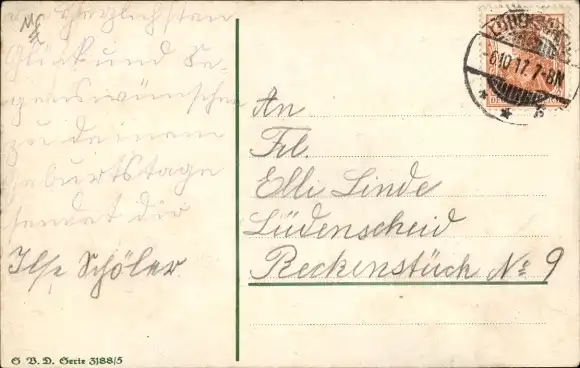 Die Herzlichsten
Glück und Se-
genswünsche
zu deinem
Geburtstage
sendet dir
Ilse Schöler
An
Frl.
Elli Linde
Lüdenscheid
Reckenstück No 9
6.10.17. 7-8N
G. B. D. Serie 3188/5